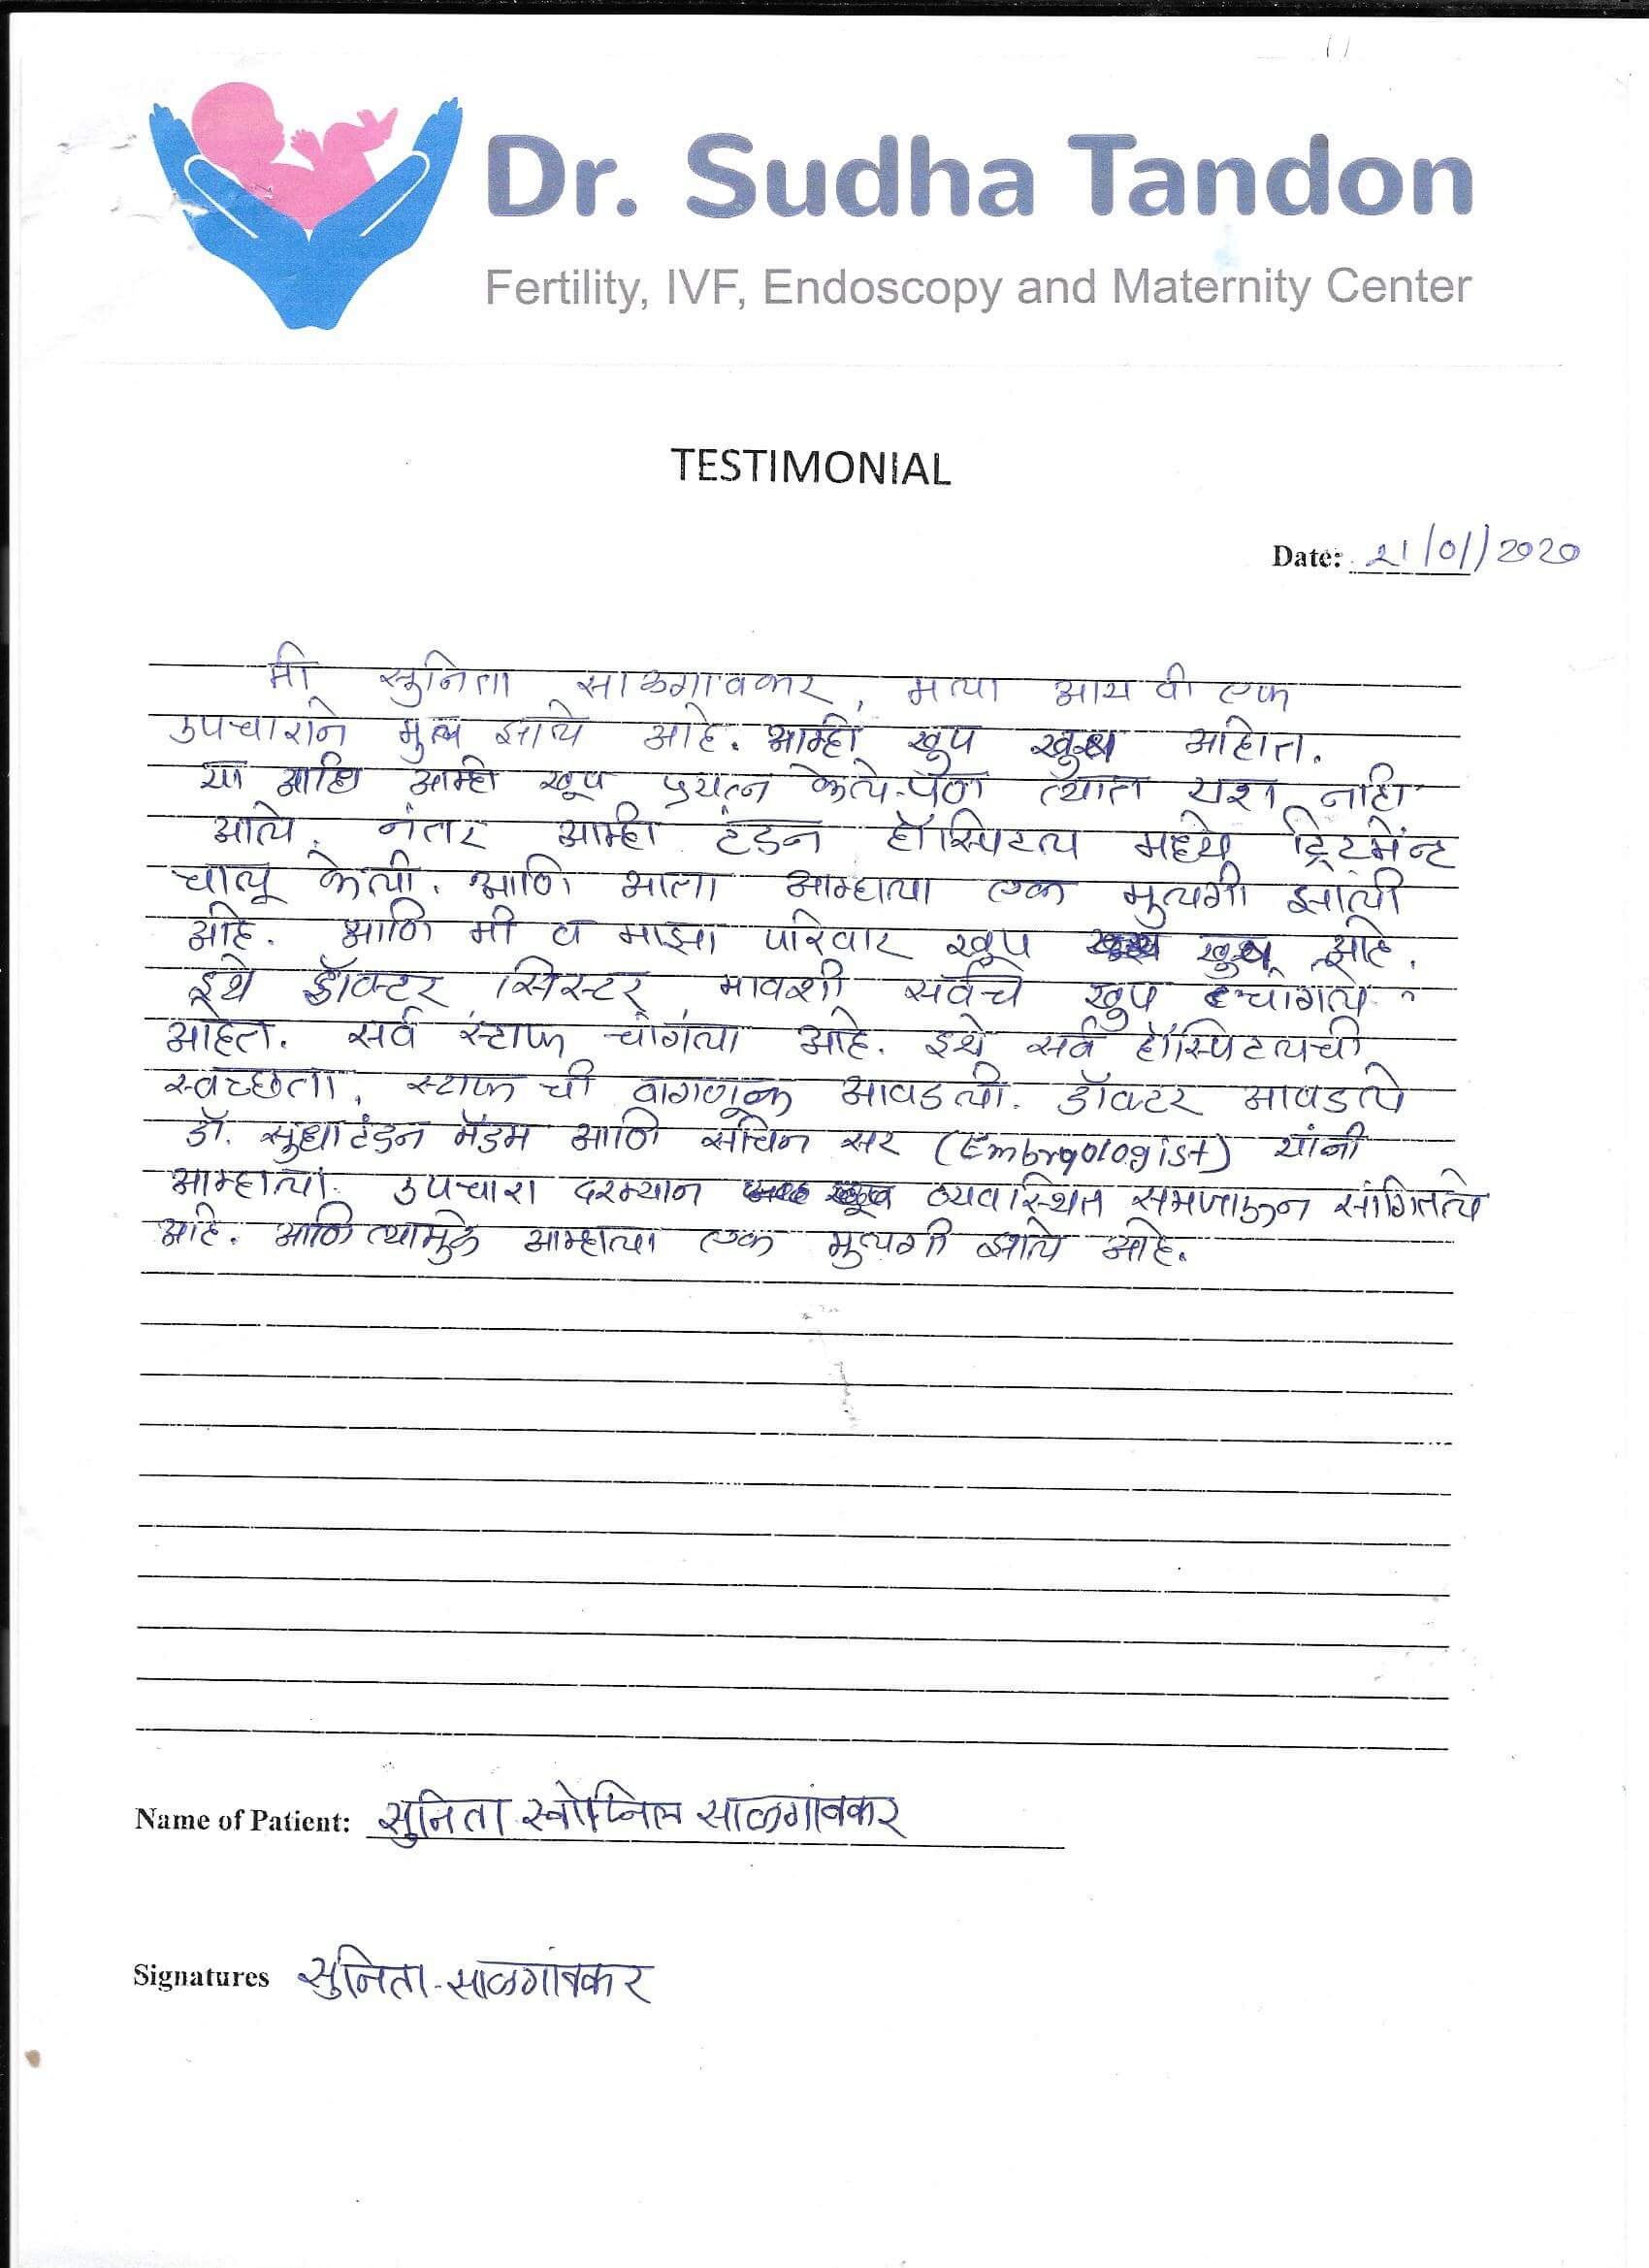 Dr. Sudha Tandon
Fertility, IVF, Endoscopy and Maternity Center
TESTIMONIAL
Date: 21/01/2020
मी सुनिता साळगावकर, मला आय वी एफ
उपचाराने मुल झाले आहे. आम्ही खूप खुश आहोत.
या आधि आम्ही खूप प्रयत्न केले. पण त्यात यश नाही
आले. नंतर आम्ही टंडन हॉस्पिटल मध्ये ट्रिटमेंन्ट
चालू केली. आणि आता आम्हाला एक मुलगी झाली
आहे. आणि मी व माझा परिवार खूप खुश आहे.
इथे डॉक्टर सिस्टर मावशी सर्वच खुप चांगले
आहेत. सर्व स्टाफ चांगला आहे. इथे सर्व हॉस्पिटलची
स्वच्छता, स्टाफ ची वागणूक आवडली. डॉक्टर आवडले
डॉ. सुधा टंडन मॅडम आणि सचिन सर (Embryologist) यांनी
आम्हाला उपचारा दरम्यान व्यवास्थित समजाऊन सांगितले
आहे. आणि त्यामुळे आम्हाला एक मुलगी झाले आहे.
Name of Patient: सुनिता साळगांवकर
Signatures सुनिता साळगांवकर